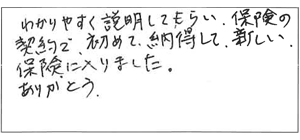 わかりやすく説明してもらい、保険の
契約で、初めて、納得して、新しい、
保険に入りました。
ありがとう、